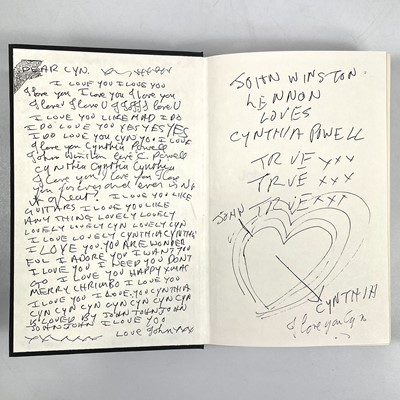 DEAR CYN.
I LOVE YOU I LOVE YOU
I love you I love you I love you
I love U I love U I love U
I LOVE YOU LIKE MAD I DO
I DO LOVE YOU YES YES YES
I DO LOVE YOU CYN YOU I LOVE
I love you Cynthia Powell
John Winston love C. Powell
Cynthia Cynthia Cynthia
I love you I love you I love
you for ever and ever isn't
it great? I LOVE YOU LIKE
GUITARS I LOVE YOU LIKE
ANY THING LOVELY LOVELY
LOVELY LOVELY CYN LOVELY CYN
I LOVE LOVELY CYNTHIA CYNTHIA
I LOVE YOU. YOU ARE WONDER
FUL I ADORE YOU I WANT YOU
I LOVE YOU I NEED YOU DON'T
GO I LOVE YOU HAPPY XMAS
MERRY CHRIMBO I LOVE YOU
I LOVE YOU I LOVE YOU CYNTHIA
CYN CYN CYN CYN CYN CYN CYN
IS LOVED BY JOHN JOHN JOHN
JOHN JOHN I LOVE YOU
LOVE John xxx
JOHN WINSTON
LENNON
LOVES
CYNTHIA POWELL
TRUE xxx
TRUE xxx
TRUE xxx
JOHN
CYNTHIA
I love you Cyn